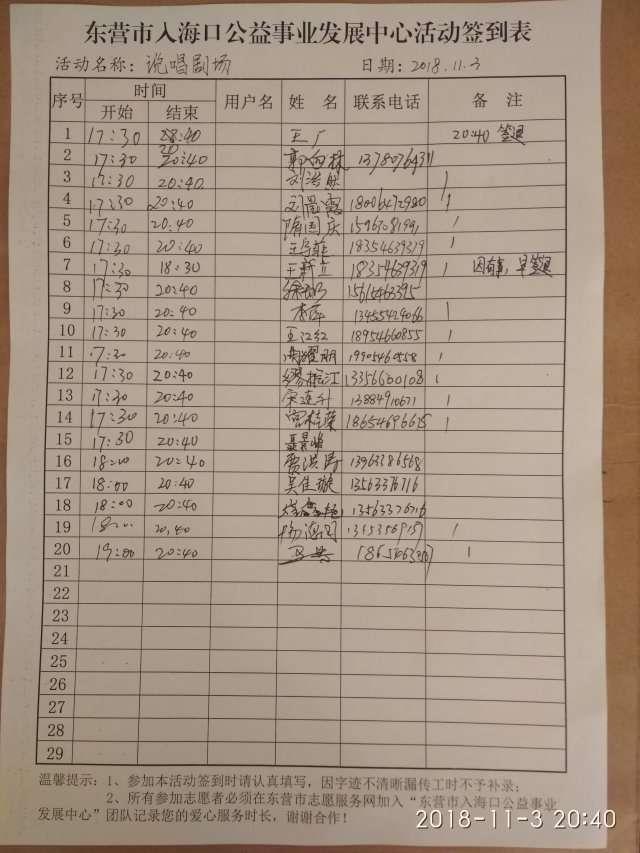 东营市入海口公益事业发展中心活动签到表
活动名称：说唱剧场 日期：2018.11.3
序号 时间 用户名 姓名 联系电话 备注
开始 结束
1 17:30 20:40 王广 20:40 签退
2 17:30 20:40
3 17:30 20:40
4 17:30 20:40 18006472980
5 17:30 20:40 隋国庆
6 17:30 20:40 18354639319
7 17:30 18:30 王新立 18354639319 因有事，早签退
8 17:30 20:40 15615463395
9 17:30 20:40 李萍 13455424066
10 17:30 20:40 王江红 18954660855
11 17:30 20:40 19905460558
12 17:30 20:40 缪振江 13356600108
13 17:30 20:40 宋连升 13884910671
14 17:30 20:40 宫桂荣
15 17:30 20:40
16 18:00 20:40 贾洪涛 13963386568
17 18:00 20:40 吴佳璇 13563376716
18 18:00 20:40 13563376716
19 18:00 20:40
20 19:00 20:40
21
22
23
24
25
26
27
28
29
温馨提示：1、参加本活动签到时请认真填写，因字迹不清晰漏传工时不予补录；
2、所有参加志愿者必须在东营市志愿服务网加入“东营市入海口公益事业
发展中心”团队记录您的爱心服务时长，谢谢合作！
2018-11-3 20:40